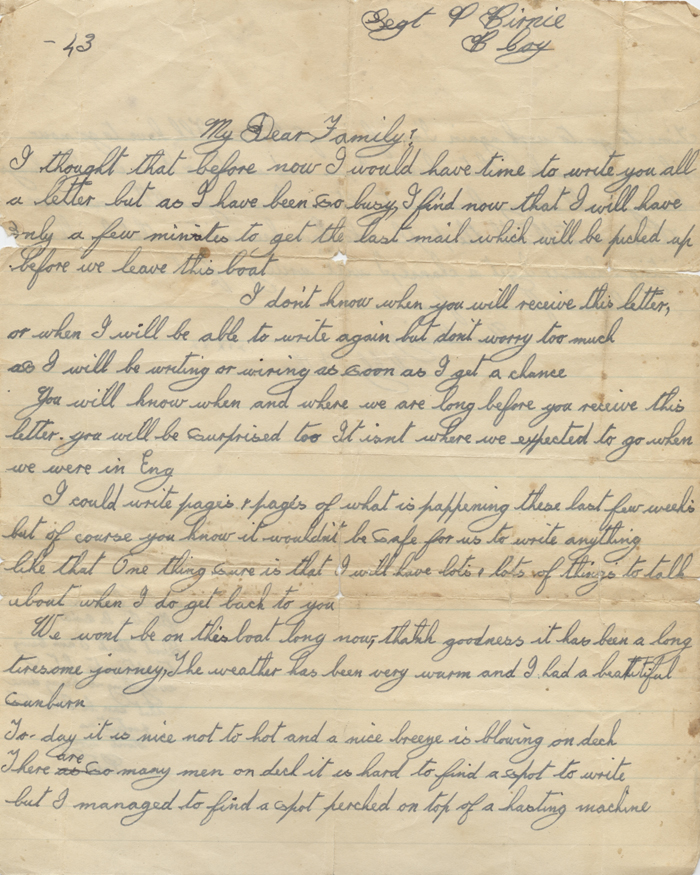 Sgt P Birnie
B Coy
- 43
My Dear Family:
I thought that before now I would have time to write you all
a letter but as I have been so busy, I find now that I will have
only a few minutes to get the last mail which will be picked up
before we leave this boat
I don't know when you will receive this letter,
or when I will be able to write again but don't worry too much
as I will be writing or wiring as soon as I get a chance
You will know when and where we are long before you receive this
letter. you will be surprised too It isnt where we expected to go when
we were in Eng
I could write pages & pages of what is happening these last few weeks
but of course you know it wouldn't be safe for us to write anything
like that One thing sure is that I will have lots & lots of things to talk
about when I do get back to you
We wont be on this boat long now, thank goodness it has been a long
tiresome journey, The weather has been very warm and I had a beautiful
sunburn
To-day it is nice not to hot and a nice breeze is blowing on deck
There are so many men on deck it is hard to find a spot to write
but I managed to find a spot perched on top of a hasting machine